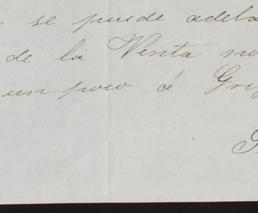 se puede adela
de la Venta no
un poco á Gri